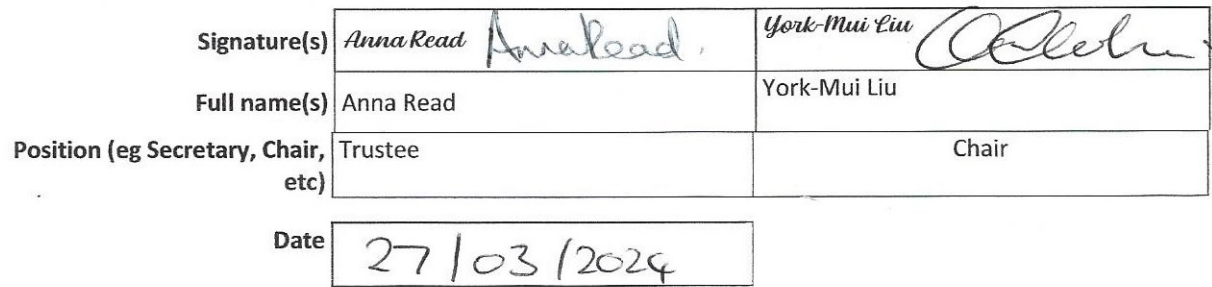 Signature(s) Anna Read AnnaRead. York-Mui Liu
Full name(s) Anna Read York-Mui Liu
Position (eg Secretary, Chair, Trustee Chair
etc)
Date 27/03/2024